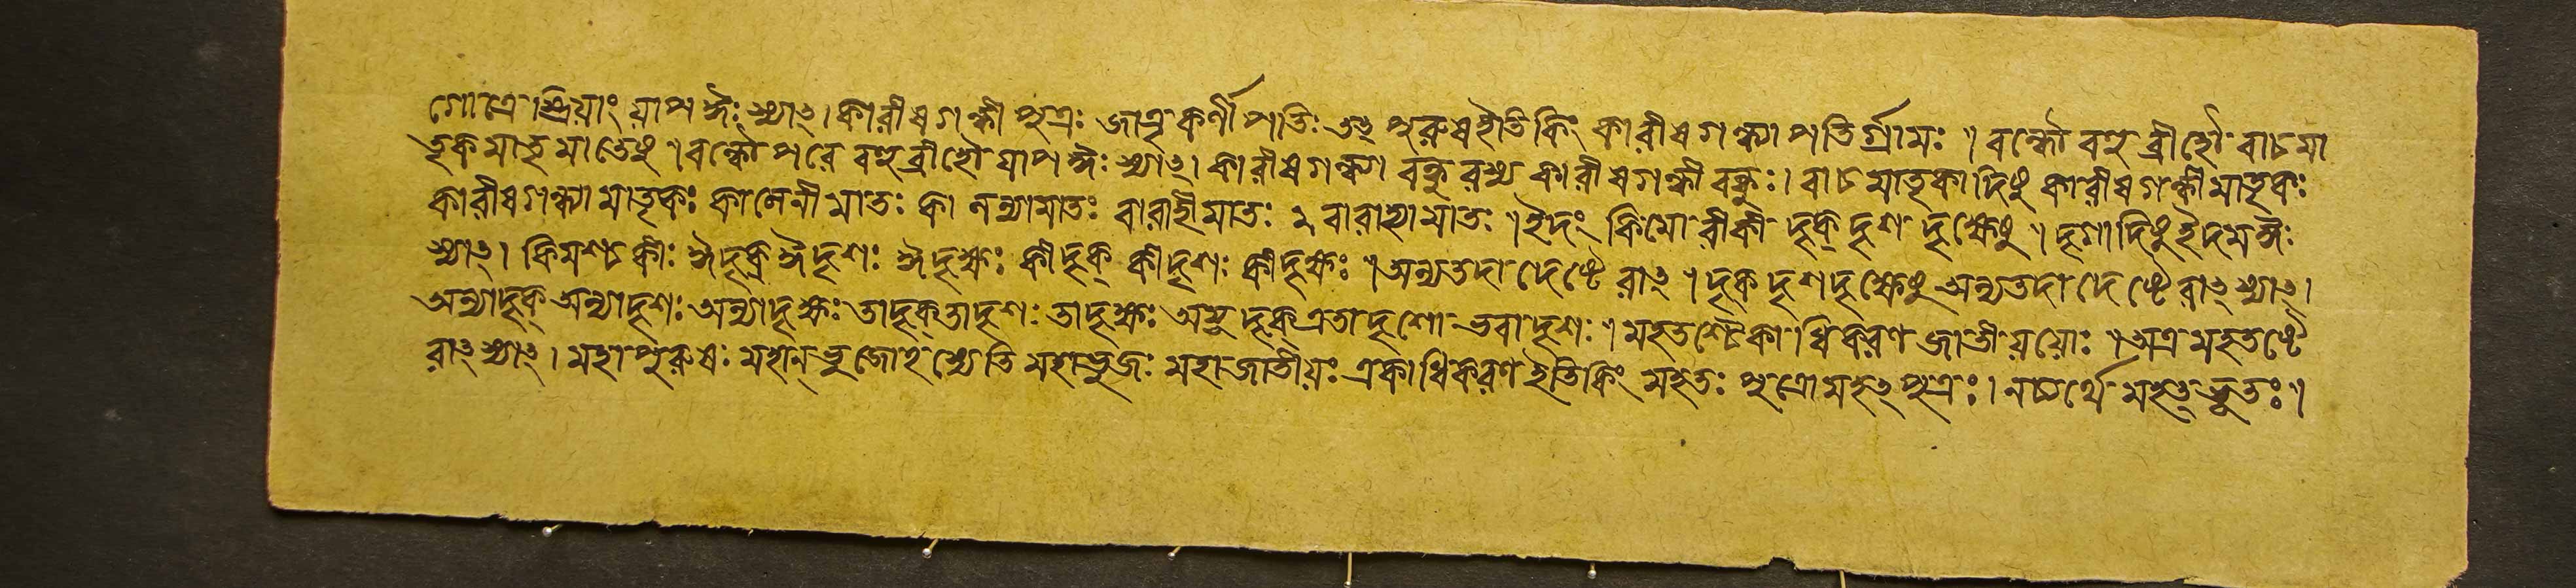 গোত্রে স্ত্রিয়াং য়াপ ঈঃ স্যাৎ। কারীষগন্ধীপুত্রঃ জাতূকর্ণীপতিঃ তৎপুরুষ ইতি কিং কারীষগন্ধ্যাপতির্গ্রামঃ ॥ বন্ধৌ বহুব্রীহৌ বাচমা
তৃকমাতৃমাতেষু ॥ বন্ধৌ পরে বহুব্রীহৌ য়াপ ঈঃ স্যাৎ। কারীষগন্ধ্যা বন্ধুরস্য কারীষগন্ধীবন্ধুঃ। বাচ মাতৃকাদিষু কারীষগন্ধীমাতৃকঃ
কারীষগন্ধ্যামাতৃকঃ কানেনীমাতঃ কানন্যামাতঃ বারাহীমাতঃ ২ বারাহ্যামাতঃ ॥ ইদং কিমো রীকী দৃক্দৃশদৃক্ষেষু ॥ দৃগাদিষু ইদম ঈঃ
স্যাৎ। কিমশ্চ কীঃ ঈদৃক্ ঈদৃশঃ ঈদৃক্ষঃ কীদৃক্ কীদৃশঃ কীদৃক্ষঃ ॥ অন্যতদাদেষ্টেরাৎ ॥ দৃকদৃশদৃক্ষেষু অন্যতদাদেষ্টেরাৎ স্যাৎ।
অন্যাদৃক্ অন্যাদৃশঃ অন্যাদৃক্ষঃ তাদৃক্ তাদৃশঃ তাদৃক্ষঃ অমূদৃক্ এতাদৃশো ভবাদৃশঃ ॥ মহতশ্চৈকাধিকরণজাতীয়য়োঃ ॥ অত্র মহতষ্টে
রাৎ স্যাৎ। মহাপুরুষঃ মহান্ ভুজোহস্যেতি মহাভুজঃ মহাজাতীয়ঃ একাধিকরণ ইতি কিং মহতঃ পুত্রো মহৎপুত্রঃ। নচ্ব্যর্থে মহদ্ভূতঃ ॥